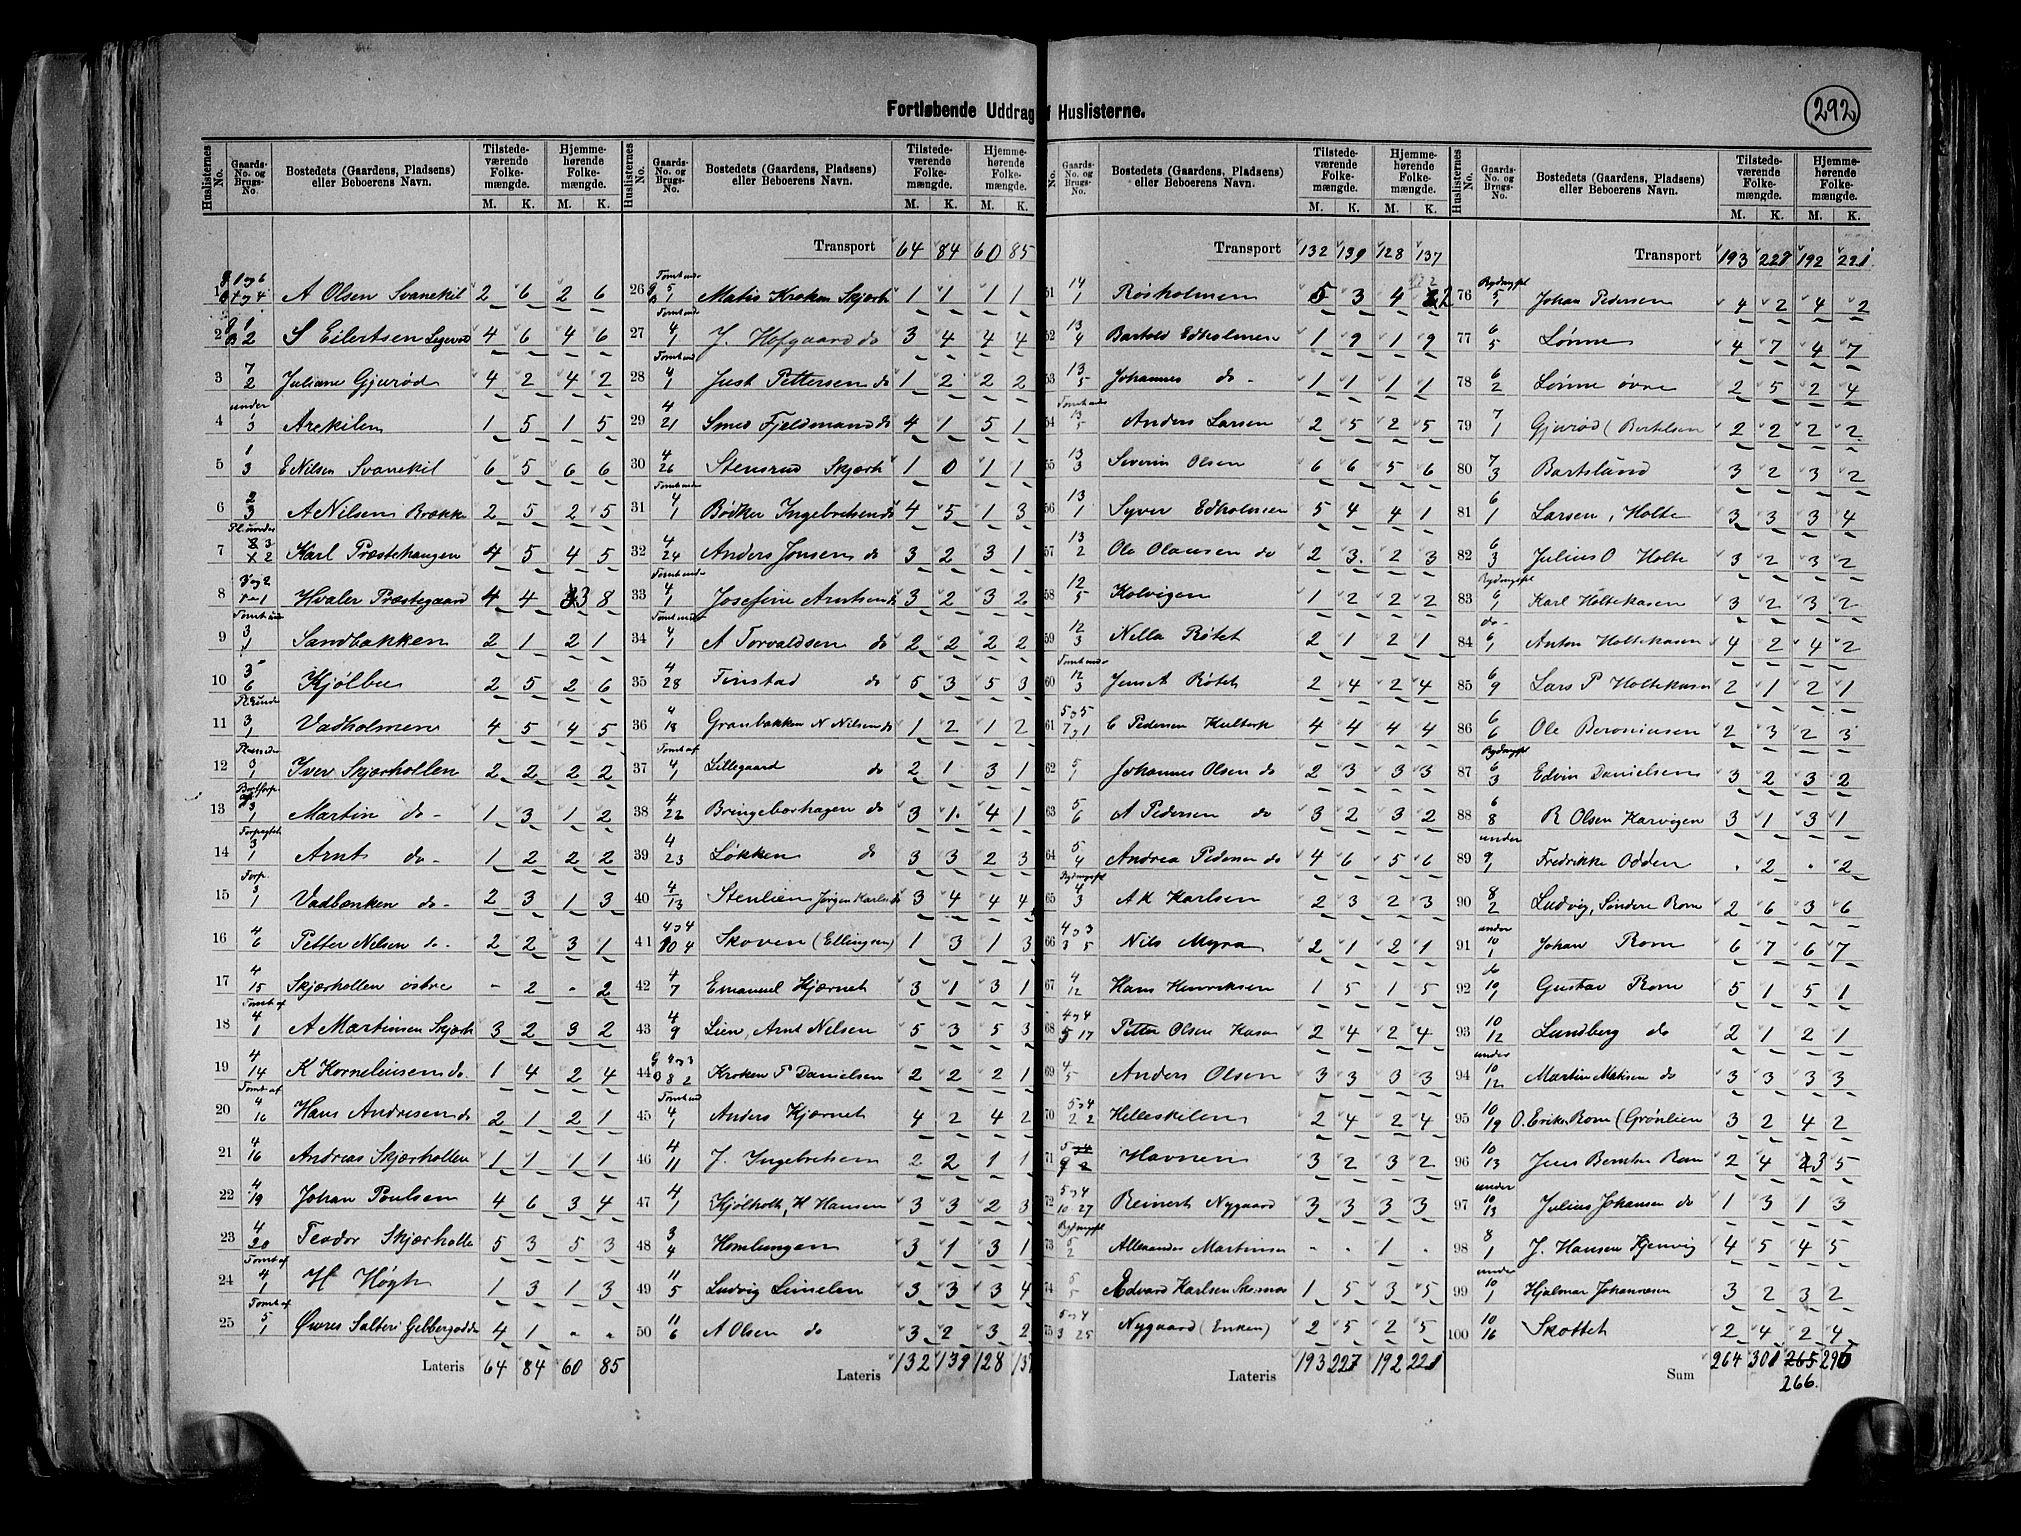 292
Fortløbende Uddrag f Huslisterne.
Huslisternes No. Gaards-No. og Brugs-No. Bostedets (Gaardens, Pladsens) eller Beboerens Navn. Tilstedeværende Folkemængde. M. K. Hjemmehørende Folkemængde. M. K.
1 A Olsen Svanekil 2 6 2 6
2 1/2 S Eilertsen 4 6 4 6
3 7/2 Juliane Gjurød 4 2 4 2
4 under 3 Arekilen 1 5 1 5
5 1/3 E Nilsen Svanekil 6 5 6 6
6 2/3 A Nilsen Brække 2 5 2 5
7 Karl Præstehaugen 4 5 4 5
8 Hvaler Præstegaard 4 4 3 8
9 3/1 Sandbakken 2 1 2 1
10 3/6 Kjølbu 2 5 2 6
11 3/1 Vadholmen 4 5 4 5
12 3/1 Iver Skjærhollen 2 2 2 2
13 3/1 Martin do- 1 3 1 2
14 3/1 Arnt do- 1 2 2 2
15 3/1 Vadbænken do- 2 3 1 3
16 4/6 Petter Nilsen do- 2 2 3 1
17 4/15 Skjærhollen østre - 2 - 2
18 Tomt af 4/1 A Martinsen Skjærh 3 2 3 2
19 4/14 K Korneliusen do 1 4 2 4
20 Tomt af 4/16 Hans Andresen do 2 1 2 1
21 4/16 Andreas Skjærhollen 1 1 1 1
22 4/19 Johan Poulsen 4 6 3 4
23 4/20 Teodor Skjærholle 5 3 5 3
24 Tomt af 4/1 H Høgh 1 3 1 3
25 Tomt af 5/1 Øvres Salteri 4 1 - -
Lateris 64 84 60 85
Huslisternes No. Gaards-No. og Brugs-No. Bostedets (Gaardens, Pladsens) eller Beboerens Navn. Tilstedeværende Folkemængde. M. K. Hjemmehørende Folkemængde. M. K.
Transport 64 84 60 85
26 5/1 Matis Kroken Skjærh 1 1 1 1
27 4/1 J. Hofgaard do 3 4 4 4
28 4/1 Just Pettersen do 1 2 2 2
29 4/21 Smed Fjeldmand do 4 1 5 1
30 4/26 Stensrud Skjærh 1 0 1 1
31 4/1 Bødker Ingebretsen do 4 5 1 3
32 4/24 Anders Jonsen do 3 2 3 1
33 4/1 Josefine Arntsen do 3 2 3 2
34 4/1 A Torvaldsen do 2 2 2 2
35 4/28 Finstad do 5 3 5 3
36 4/18 Granbakken N Nilsen do 1 2 1 2
37 Tomt af 4/1 Lillegaard do 2 1 3 1
38 4/22 Bringeborhagen do 3 1 4 1
39 4/23 Løkken do 3 3 2 3
40 4/13 Stenlien Jørgen Karls do 3 4 4 4
41 4 og 4/10 4 Skoven (Ellingsen) 1 3 1 3
42 4/7 Emanuel Kjærnet 3 1 3 1
43 4/9 Lien, Arnt Nilsen 5 3 5 3
44 G 4 og 3 B 8 2 Kroken P Danielsen 2 2 2 1
45 4/1 Anders Kjærnet 4 2 4 2
46 4/11 J. Ingebretsen 2 2 1 1
47 4/1 Kjølholt, H Hansen 3 3 2 3
48 3/4 Homlungen 3 1 3 1
49 11/5 Ludvig Limelen 3 3 3 4
50 11/6 A Olsen do 3 2 3 2
Lateris 132 139 128 137
No. Gaards-No. og Brugs-No. Bostedets (Gaardens, Pladsens) eller Beboerens Navn. Tilstedeværende Folkemængde. M. K. Hjemmehørende Folkemængde. M. K.
Transport 132 139 128 137
51 14/1 Røsholmen 5 3 4 2
52 13/4 Bartold Edholmen 1 9 1 9
53 13/5 Johannes do- 1 1 1 1
54 13/5 Anders Larsen 2 5 2 5
55 13/3 Severin Olsen 6 6 5 6
56 13/1 Syver Edholmen 5 4 4 1
57 13/2 Ole Olausen do 2 3 2 3
58 12/5 Kolvigen 1 2 2 2
59 12/3 Nella Rødet 2 1 2 1
60 12/3 Jens A Rødet 2 4 2 4
61 5 og 5/7 og 1 C Pedersen 4 4 4 4
62 5/1 Johannes Olsen do 2 3 3 3
63 5/6 A Pedersen do 3 2 3 2
64 5/4 Andrea Pedersen do 4 6 5 6
65 4/3 A K Karlsen 2 3 2 3
66 4 og 3/3 5 Nils Myra 2 1 2 1
67 4/12 Hans Henriksen 1 5 1 5
68 4 og 4/5 17 Petter Olsen Kasa 2 4 2 4
69 4/5 Anders Olsen 3 3 3 3
70 5 og 4/2 2 Helleskilen 2 4 2 4
71 Havnen 3 2 3 2
72 5 og 4/10 27 Reinert Nygaard 3 3 3 3
73 5/2 Alexander Martinsen - - 1 -
74 5/5 Edvard Karlsen 1 5 3 5
75 5 og 4/3 25 Nygaard (Enken) 2 5 2 5
Lateris 193 227 192 221
Huslisternes No. Gaards-No. og Brugs-No. Bostedets (Gaardens, Pladsens) eller Beboerens Navn. Tilstedeværende Folkemængde. M. K. Hjemmehørende Folkemængde. M. K.
Transport 193 227 192 221
76 5/1 Johan Pedersen 4 2 4 2
77 6/5 Lønne 4 7 4 7
78 6/2 Lønne øvre 2 5 2 4
79 7/1 Gjurød (Bertelsen 2 2 2 2
80 7/3 Bartslund 3 2 3 2
81 6/1 Larsen, Holte 3 3 3 4
82 6/3 Julius O Holte 3 2 3 2
83 6/1 Karl Holtekasen 3 2 3 2
84 do- 6/1 Anton Holtekasen 4 2 4 2
85 6/9 Lars P Holtekasen 2 1 2 1
86 6/6 Ole Beroniusen 2 3 2 3
87 6/3 Edvin Danielsen 3 2 3 2
88 6/8 R Olsen Karvigen 3 1 3 1
89 under 9/1 Fredrikke Odden . 2 . 2
90 8/2 Ludvig, Søndere Rom 2 6 3 6
91 under 10/1 Johan Rom 6 7 6 7
92 do 10/1 Gustav Rom 5 1 5 1
93 10/12 Lundberg do 2 1 2 1
94 under 10/12 Martin Matisen do 3 3 3 3
95 10/19 O. Eriks. Rom (Grønlien 3 2 4 2
96 10/13 Jens Berntse Rom 2 4 3 5
97 under 10/13 Julius Johansen do 1 3 1 3
98 8/1 J. Hansen Kjenvig 4 5 4 5
99 under 10/1 Hjalmar Johannesen 3 2 3 2
100 10/16 Skottet 2 4 2 4
Sum 264 301 265 296
266.